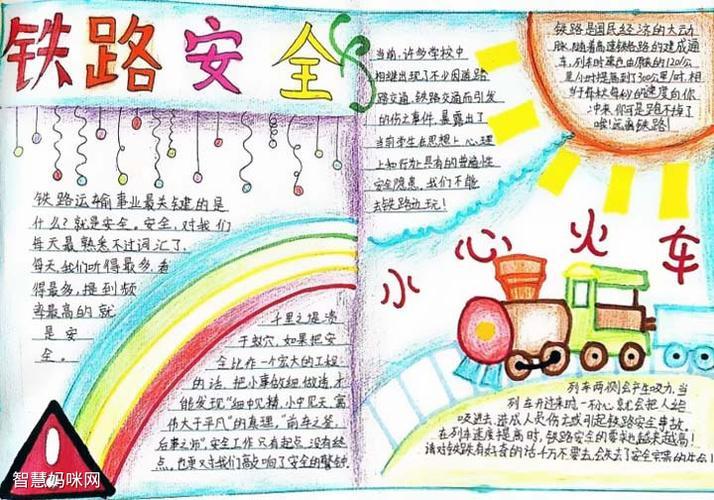 铁路安全
铁路运输事业最关键的是
什么?就是安全。安全,对我们
每天最熟悉不过词汇了,
每天,我们听得最多,看
得最多,提到频
率最高的就
是安
全。
千里之堤溃
于蚁穴,如果把安
全比作一个宏大的工程
的话,把小事做细做活,才
能发现"细中见精,小中见大,寓
伟大于平凡"的真理,"前车之鉴,
后事之师",安全工作只有起点,没有终
点,也要又守我们敲响了安全的警钟
当前,许多学校中
相继出现了不少因道路
路交通、铁路交通而引发
的伤亡事件,暴露出了
当前学生在思想上心理
上和行为具有的普遍性
安全隐患,我们不能
去铁路边玩!
铁路是国民经济的大动
脉,随着高速铁路的建成通
车,列车时速也由原来的120公
里/小时提高到了300公里/时,相
当于每秒 的速度向你
冲来,你可是跑不掉了
哦!远离铁路!
小心火车
列车两侧会产生吸力,当
列车开过来时,一不小心就会把人给
吸进去,造成人员伤亡或引起铁路安全事故。
在列车速度提高时,铁路安全的要求也越来越高!
请对铁路有好奇的话千万不要去,会失去了安全宝贵的生命!
智慧妈咪网